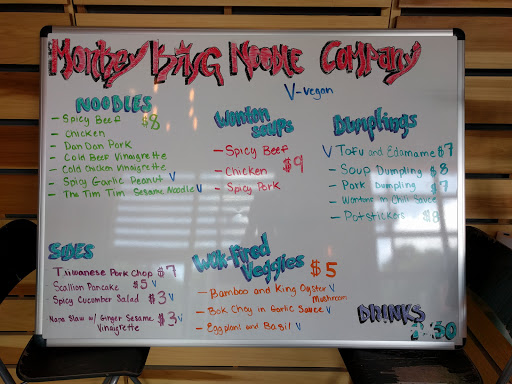 Monkey King Noodle Company
V-vegan
NOODLES
- Spicy Beef $8
- Chicken
- Dan Dan Pork
- Cold Beef Vinaigrette
- Cold Chicken Vinaigrette
- Spicy Garlic Peanut V
- The Tim Tim Sesame Noodle V
Wonton Soups
- Spicy Beef
- Chicken $9
- Spicy Pork
Dumplings
V Tofu and Edamame $7
- Soup Dumpling $8
- Pork Dumpling $7
- Wontons in Chili Sauce
- Potstickers $8
SIDES
Taiwanese Pork Chop $7
Scallion Pancake $5 V
Spicy Cucumber Salad $3 V
Napa Slaw w/ Ginger Sesame Vinaigrette $3 V
Wok-Fired Veggies $5
- Bamboo and King Oyster Mushroom V
- Bok Choy in Garlic Sauce V
- Eggplant and Basil V
DRINKS